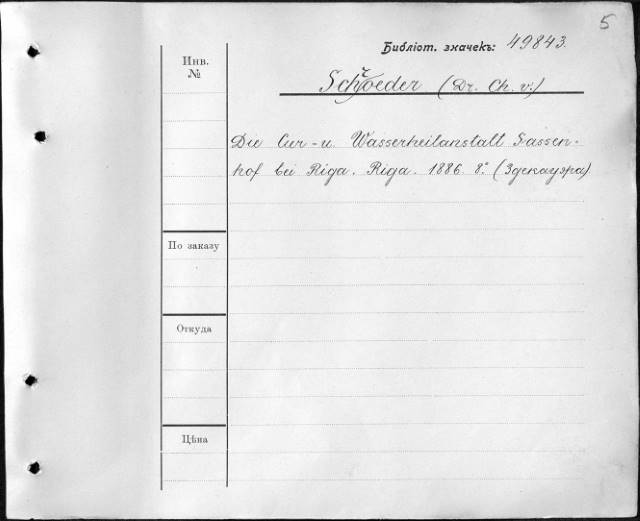 5
Библіот. значекъ: 49843.
Инв.
№
Schroeder (Dr. Ch. v:)
Die Cur-u. Wasserheilanstalt Sassen-
hof bei Riga. Riga. 1886. 8.° (Здекауэра)
По заказу
Откуда
Цѣна